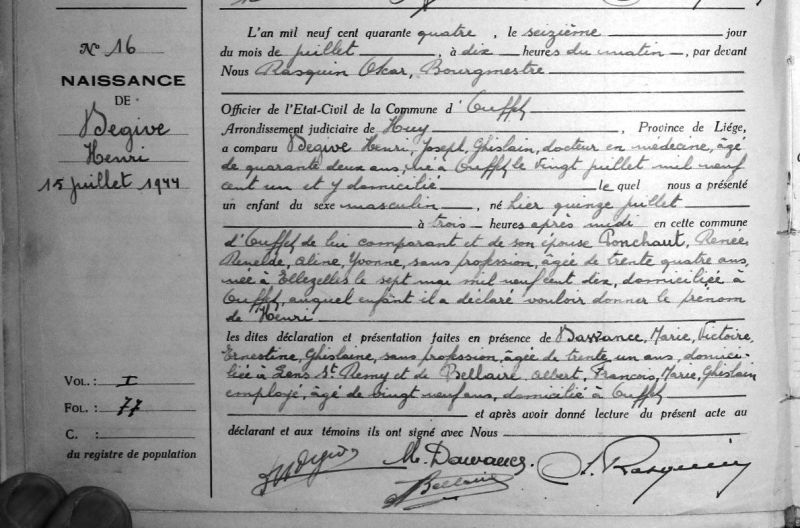 N° 16
NAISSANCE
DE
Degive
Henri
15 juillet 1944
VOL. : I
FOL. : 77
C. :
du registre de population
L'an mil neuf cent quarante quatre, le seizième jour
du mois de juillet, à dix heures du matin, par devant
Nous Rasquin Oscar, Bourgmestre
Officier de l'Etat-Civil de la Commune d'Ouffet
Arrondissement judiciaire de Huy, Province de Liége,
a comparu Degive Henri, Joseph, Ghislain, docteur en médecine, âgé
de quarante deux ans, né à Ouffet le vingt juillet mil neuf
cent un et y domicilié le quel nous a présenté
un enfant du sexe masculin, né hier quinze juillet
à trois heures après midi en cette commune
d'Ouffet de lui comparant et de son épouse Ponchaut, Renée
Renelde, Aline, Yvonne, sans profession, âgée de trente quatre ans,
née à Ellezelles le sept mai mil neuf cent dix, domiciliée à
Ouffet, auquel enfant il a déclaré vouloir donner le prénom
de Henri
les dites déclaration et présentation faites en présence de Dawance, Marie, Victoire,
Ernestine, Ghislaine, sans profession, âgée de trente un ans, domici-
liée à Lens St Remy et de Bellaire, Albert, François, Marie, Ghislain
employé, âgé de vingt neuf ans, domicilié à Ouffet
et après avoir donné lecture du présent acte au
déclarant et aux témoins ils ont signé avec Nous
Degive M. Dawance. Rasquin
Bellaire